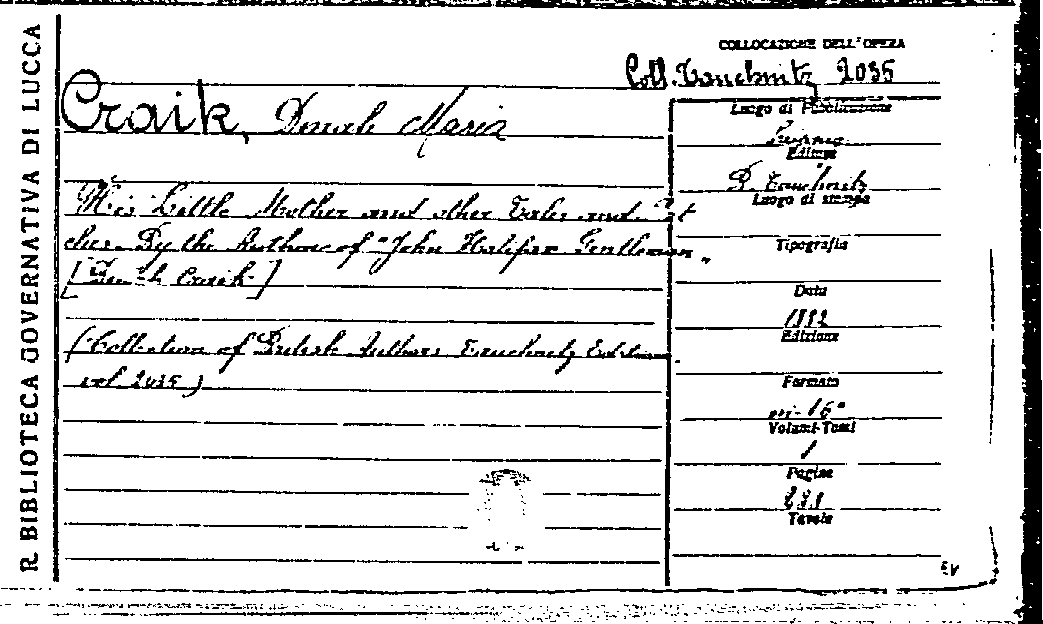 R. BIBLIOTECA GOVERNATIVA DI LUCCA
COLLOCAZIONE DELL'OPERA
Coll. Tauchnitz 2035
Craik, Dinah Maria
His Little Mother and other Tales and
ches. By the Author of "John Halifax Gentleman"
[Dinah Craik]
(Collection of British Authors Tauchnitz Edition
vol 2035)
Luogo di Pubblicazione
Editore
B. Tauchnitz
Luogo di stampa
Tipografia
Data
1882
Edizione
Formato
in-16°
Volumi-Tomi
1
Pagine
Tavole
EV